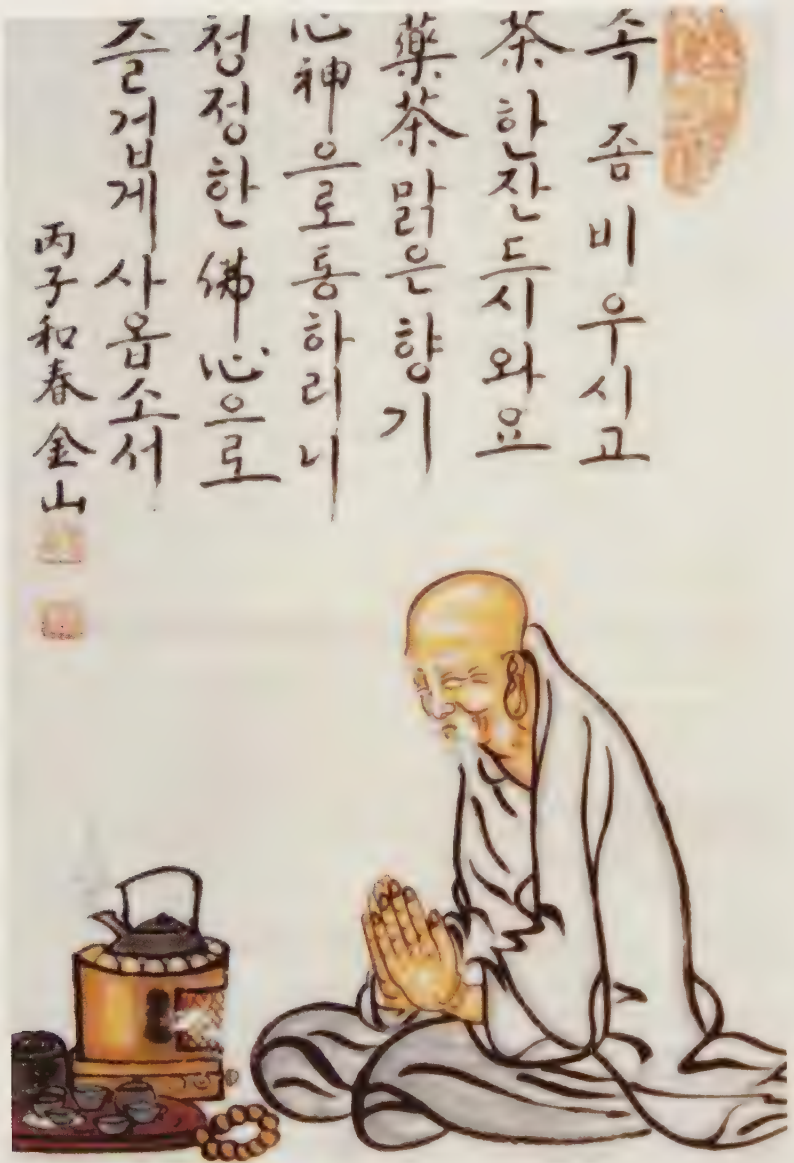 속 좀 비우시고
茶 한잔 드시와요
藥茶 맑은 향기
心神으로 통하리니
청정한 佛心으로
즐겁게 사옵소서
丙子和春 金山